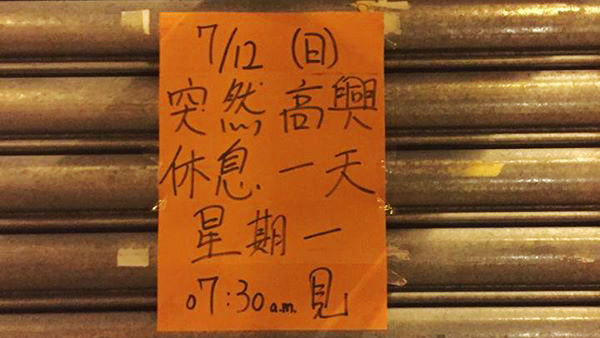 7/12 (日)
突然高興
休息一天
星期一
07:30 a.m. 見